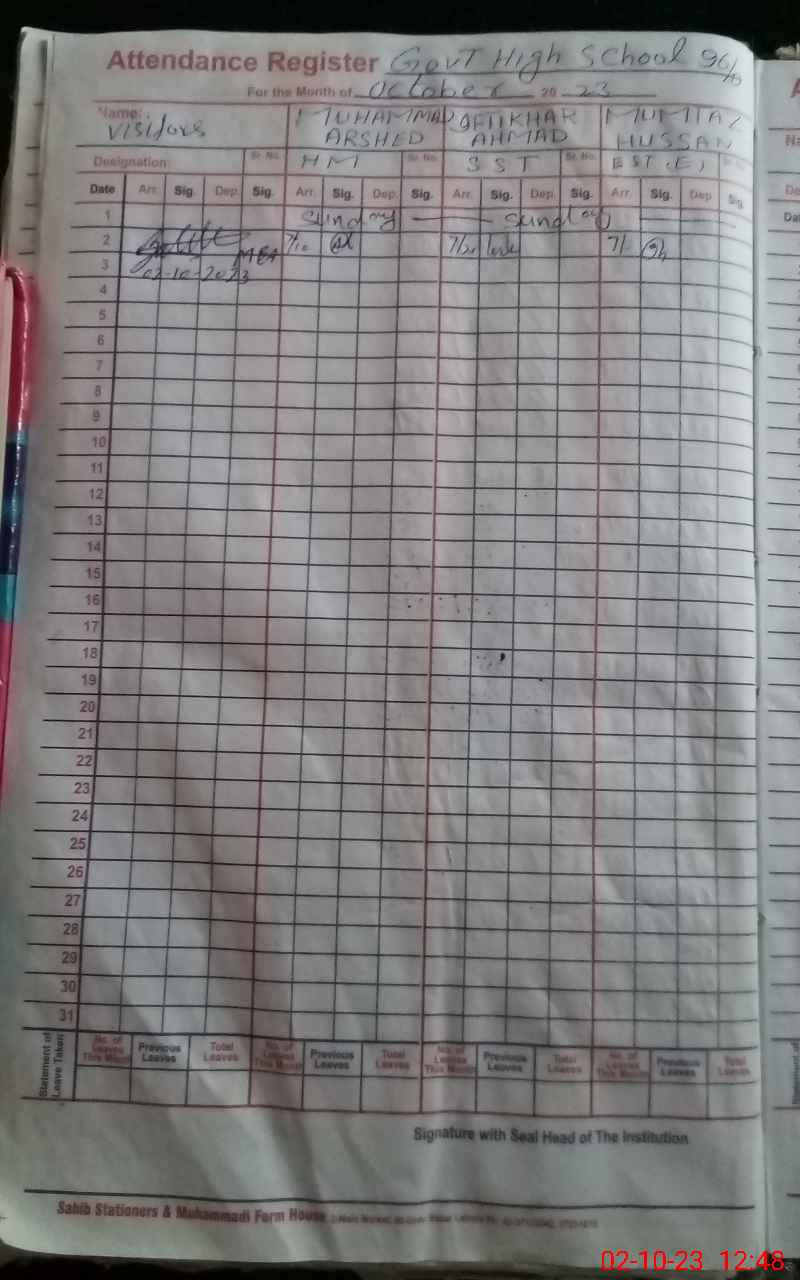 Attendance Register Govt High School 96/
For the Month of October 20 23
Name: Visitors MUHAMMAD ARSHED IFTIKHAR AHMAD MUMTAZ HUSSAN
Designation: Sr. No. HM Sr. No. SST Sr. No. EST (E) Sr. No.
Date Arr. Sig. Dep. Sig. Arr. Sig. Dep. Sig. Arr. Sig. Dep. Sig. Arr. Sig. Dep Sig
1 Sunday Sunday
2 MEA
3 02-10-2023
4
5
6
7
8
9
10
11
12
13
14
15
16
17
18
19
20
21
22
23
24
25
26
27
28
29
30
31
Statement of Leave Taken No. of Leaves This Month Previous Leaves Total Leaves No. of Leaves This Month Previous Leaves Total Leaves No. of Leaves This Month Previous Leaves Total Leaves No. of Leaves This Month Previous Leaves Total Leaves
Signature with Seal Head of The Institution
Sahib Stationers & Muhammadi Form House
02-10-23 12:48